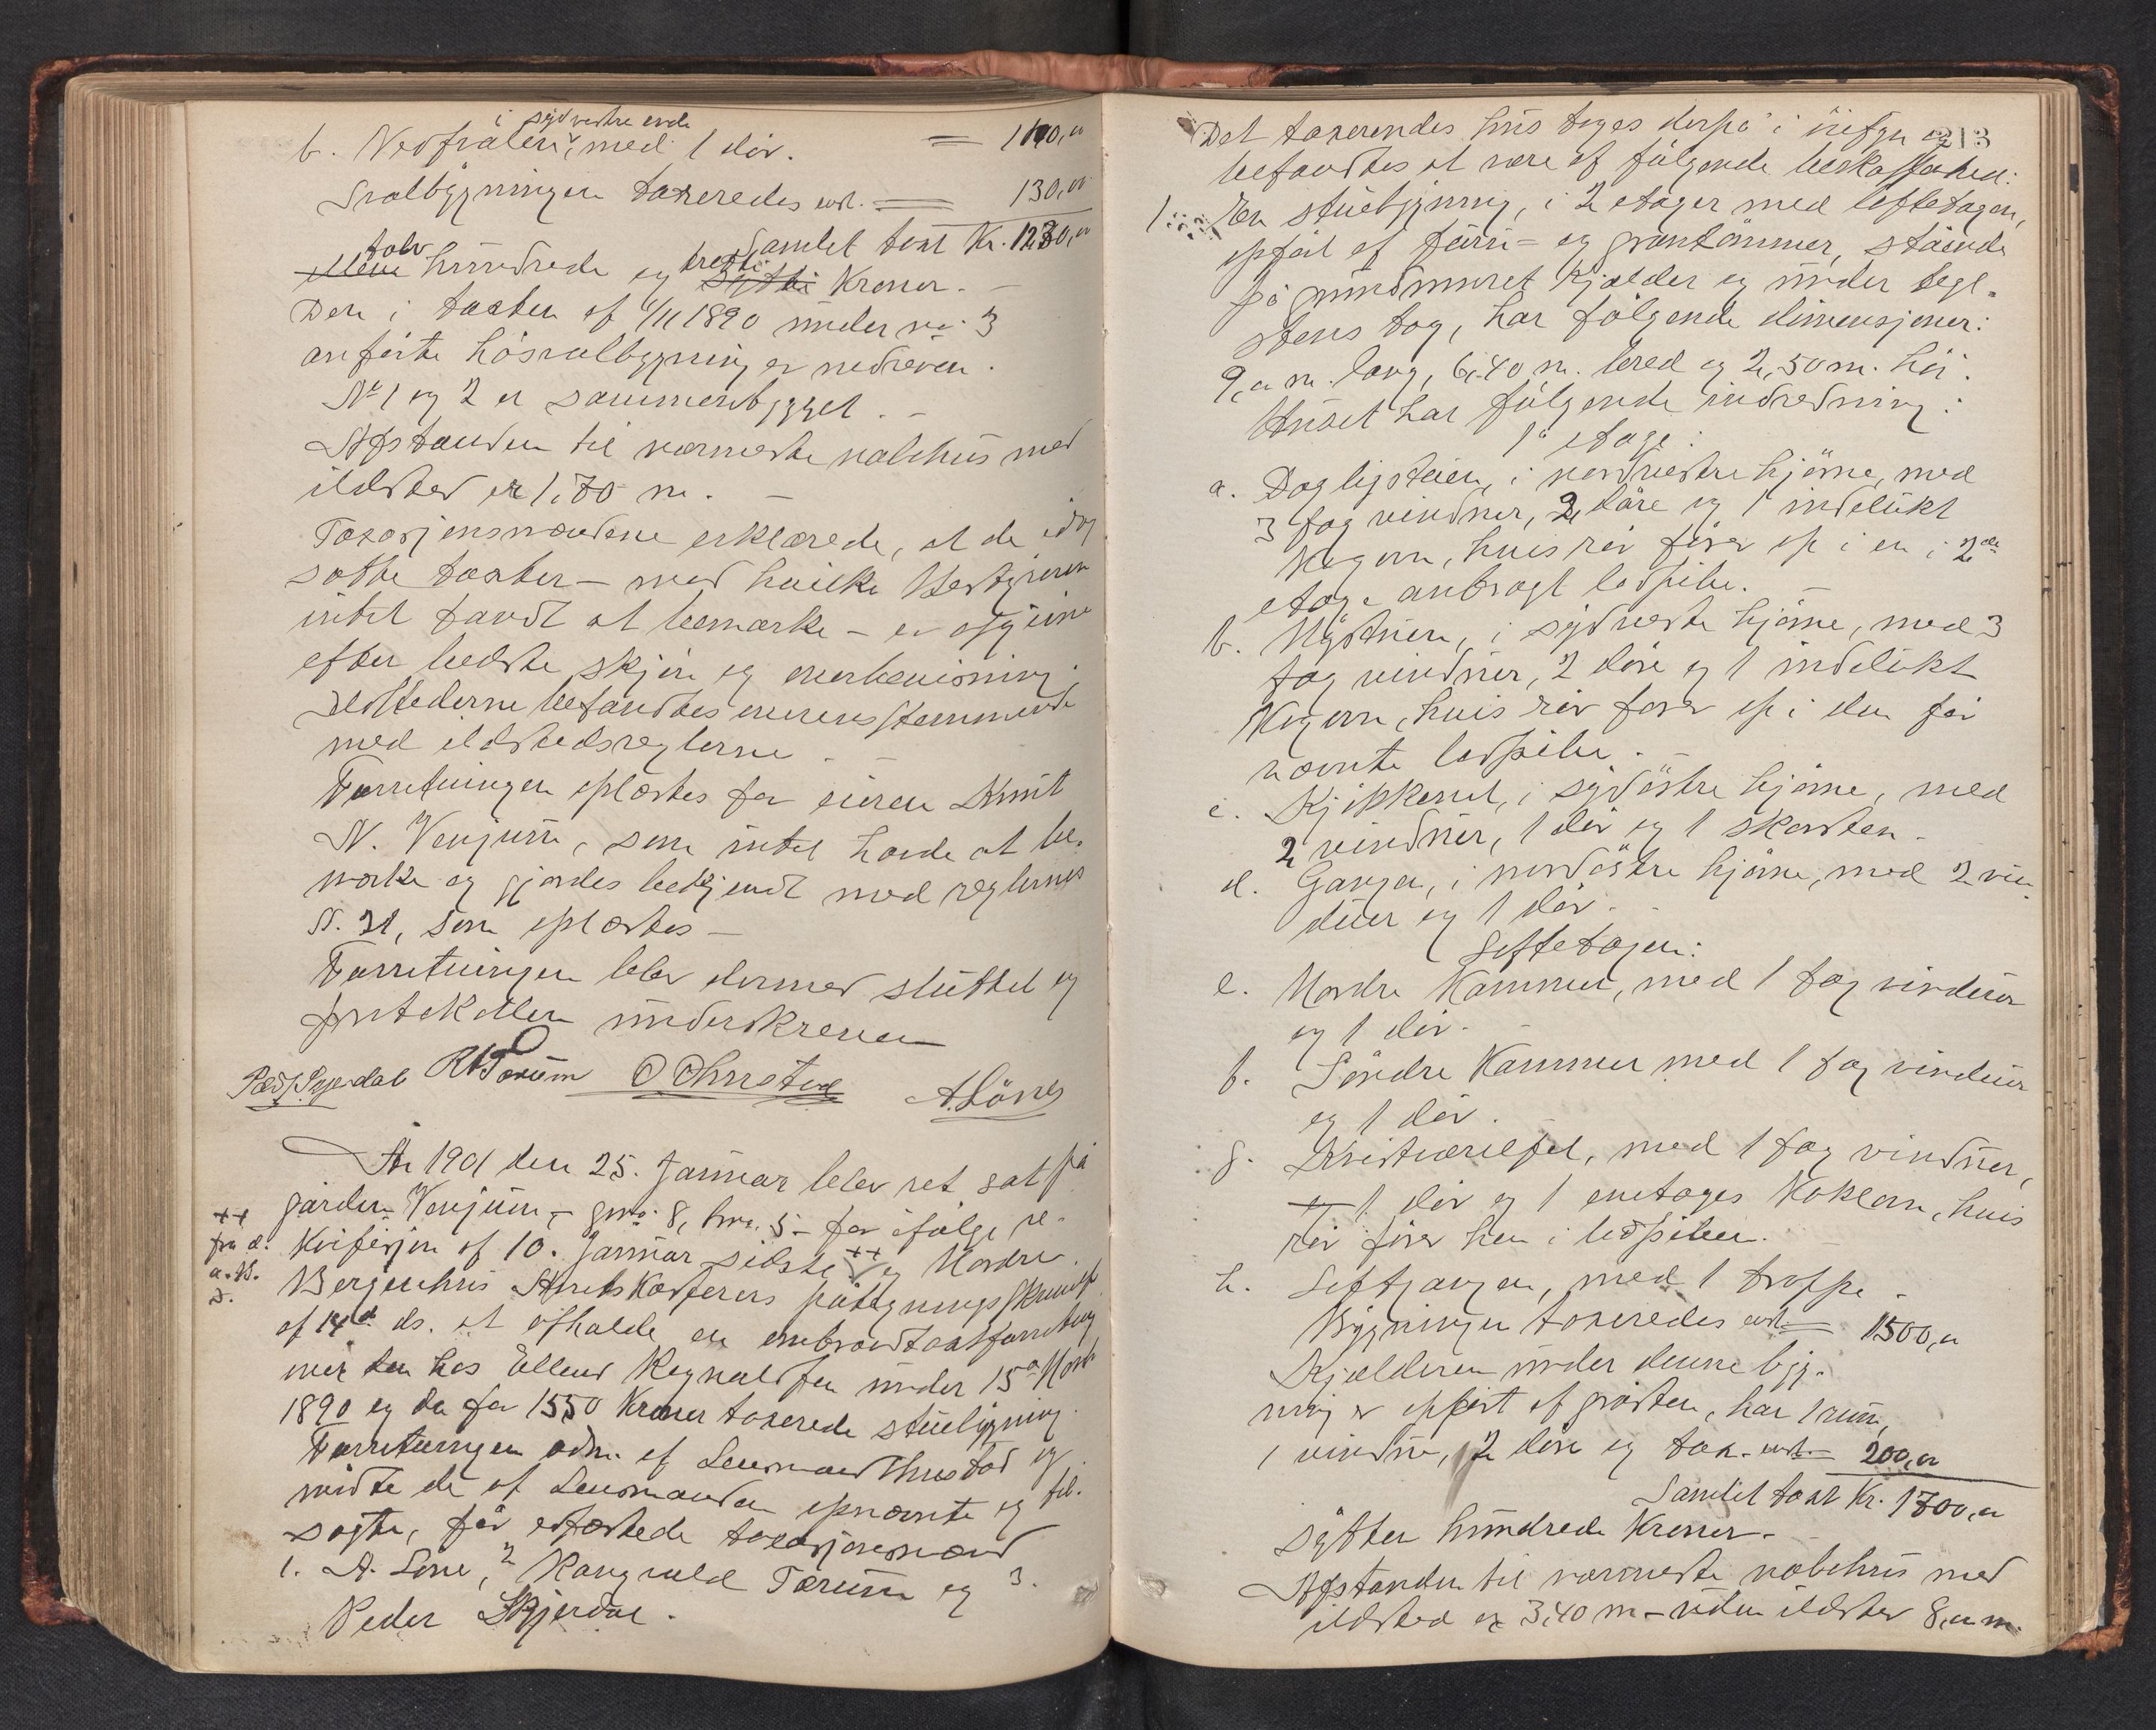 i sydvestre ende
b. Vedsvalen, med 1 dör. = 100,00
Svalbygningen taxeredes ust. = 130,00
Samlet taxt Kr. 1230,00
tolv hundrede og tretti Kroner. –
Den i taxten af 6/11 1890 under no. 3
anförte hösvalbygning er nedreven.
No 1 og 2 er sammenbygget. –
Afstanden til nærmeste nabohus med
ildsted er 1,70 m. –
Taxasjonsmændene erklærede, at de idag
satte taxter – med hvilke Bestyreren
intet fandt at bemærke – er afgivne
efter bedste skjön og overbevisning.
Ildstederne befandtes overensstemmende
med ildstedsreglerne. –
Forretningen oplæstes for eieren Knut
N. Venjum, som intet havde at be-
mærke og gjordes bekjendt med reglernes
§. 31, som oplæstes –
Forretningen blev dermed sluttet og
protokollen underskreven
Ped. Skjerdal R Tærum O Ohnstad A. Löne
År 1901 den 25. Januar blev ret sat på
gården Venjum – gno. 8, bno. 5 – for ifölge re-
++ fra d. a. B. D.
kvisisjon af 10. Januar sidste ++ og Nordre
Bergenhus Amtskasserers påtegningsskrivelse
af 14de ds. at afholde en ombrandtaxtforretning
over den hos Ellend Ragnaldsen under 15de Novbr
1890 og da for 1550 Kroner taxerede stuebygning.
Forretningen adm. af Lensmand Ohnstad og
mödte de af Lensmanden opnævnte og til-
sagte, før edfæstede taxasjonsmænd
1. A. Löne, 2 Rangvald Tærum og 3.
Peder Skjerdal.
213
Det taxerendes hus toges derpå i öiesyn og
befandtes at være af fölgende beskaffenhed:
1. En stuebygning, i 2 etager med loftetagen,
opfört af furu- og grantömmer, stående
på grundmuret Kjælder og under tegl-
stens tag, har fölgende dimensjoner:
9,00 m. lang, 6,40 m. bred og 2,50 m. höi.
Huset har fölgende indredning:
1ste etage:
a. Dagligstuen, i nordvestre hjörne, med
3 fag vinduer, 2 döre og 1 indelukt
Kogovn, huis rör förer op i en i 2den
etage anbragt lodpibe. –
b. Nystuen, i sydvestre hjörne, med 3
fag vinduer, 2 döre og 1 indelukt
Kogovn, huis rör förer op i den før
nævnte lodpibe. –
c. Kjökkenet, i sydöstre hjörne, med
2 vinduer, 1 dör og 1 skorsten. –
d. Gangen, i nordöstre hjörne, med 2 vin-
duer og 1 dör. –
Loftetagen:
e. Nordre Kammer, med 1 fag vinduer
og 1 dör. –
f. Söndre Kammer med 1 fag vinduer
og 1 dör.
g. Kvistværelset, med 1 fag vinduer,
1 dör og 1 enetages Kakelovn, huis
rör förer hen i lodpiben. –
h. Loftgangen, med 1 trappe. –
Bygningen taxeredes ust. = 1500,00
Kjælderen under denne byg-
ning er opfört af gråsten, har 1 rum,
1 vindue, 2 döre og tax. ust. = 200,00
Samlet taxt Kr. 1700,00
sytten hundrede Kroner. –
Afstanden til nærmeste nabohus med
ildsted er 3,40 m – uden ildsted 8,00 m.